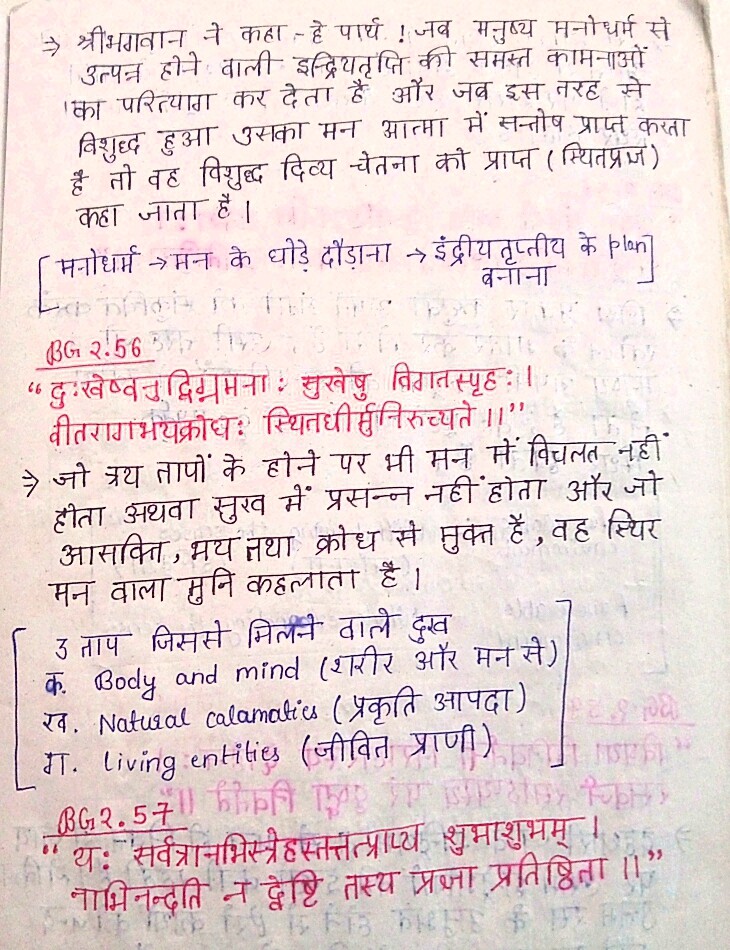 ⇒ श्रीभगवान ने कहा - हे पार्थ ! जब मनुष्य मनोधर्म से
उत्पन्न होने वाली इन्द्रियतृप्ति की समस्त कामनाओं
का परित्याग कर देता है और जब इस तरह से
विशुद्ध हुआ उसका मन आत्मा में सन्तोष प्राप्त करता
है तो वह विशुद्ध दिव्य चेतना को प्राप्त (स्थितप्रज्ञ)
कहा जाता है ।
[मनोधर्म → मन के घोड़े दौड़ाना → इंद्रीयतृप्तीय के plan
बनाना]
BG 2.56
“दुःखेष्वनुद्विग्नमनाः सुखेषु विगतस्पृहः ।
वीतरागभयक्रोधः स्थितधीर्मुनिरुच्यते ।।”
⇒ जो त्रय तापों के होने पर भी मन में विचलत नहीं
होता अथवा सुख में प्रसन्न नहीं होता और जो
आसक्ति, भय तथा क्रोध से मुक्त है, वह स्थिर
मन वाला मुनि कहलाता है ।
[3 ताप जिससे मिलने वाले दुख
क. Body and mind (शरीर और मन से)
ख. Natural calamatics (प्रकृति आपदा)
ग. living entities (जीवित प्राणी)]
BG 2.57
“यः सर्वत्रानभिस्नेहस्तत्तत्प्राप्य शुभाशुभम् ।
नाभिनन्दति न द्वेष्टि तस्य प्रज्ञा प्रतिष्ठिता ।।”